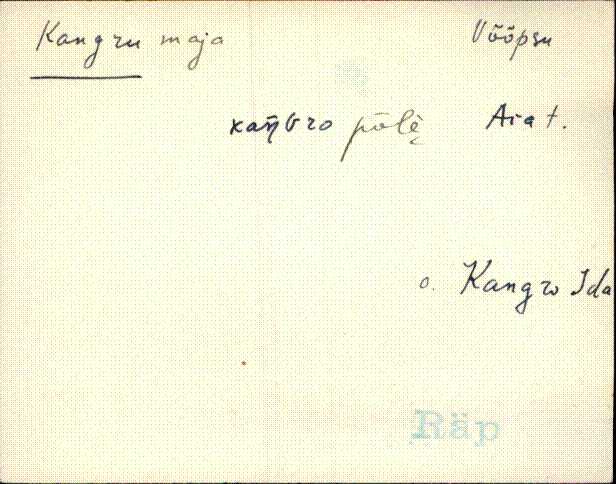 Kangru maja Vööpsu
kaŋGro pōlè̬ Aia t.
o. Kangro Ida
Räp